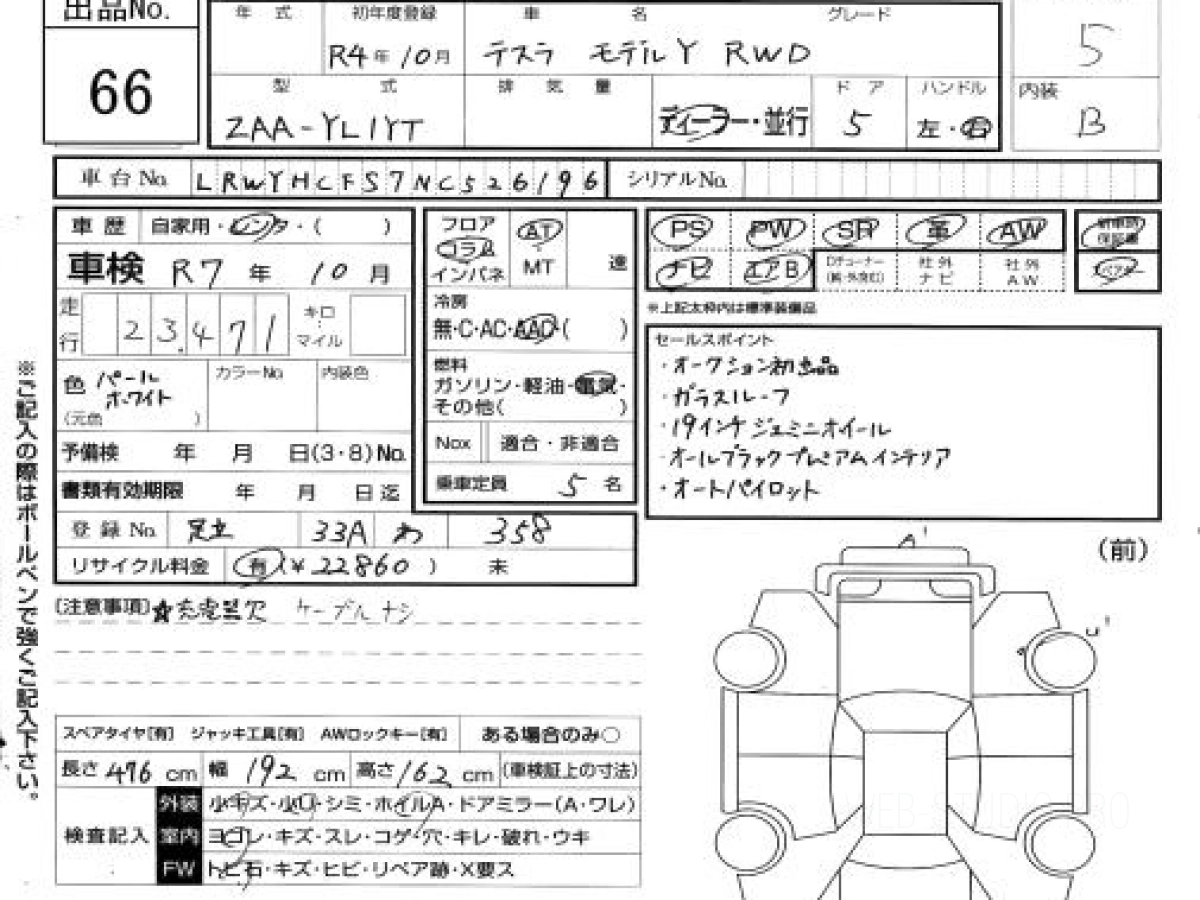 出品No.
66
年 式
初年度登録
車 名
グレード
R4年10月
テスラ モデルY RWD
5
型 式
排 気 量
ドア
ハンドル
内装
ZAA-YL1YT
ディーラー・並行
5
左・右
B
車台No.
LRWYHCFS7NC526196
シリアルNo.
車歴
自家用・レンタ・( )
車検 R7年 10月
走行
23.471
キロ
マイル
色
パール
ホワイト
(元色 )
カラーNo
内装色
予備検 年 月 日(3・8)No.
書類有効期限 年 月 日迄
登録No. 足立 33A わ 358
リサイクル料金 有(¥22860) 未
フロア
コラム
インパネ
AT
MT
速
冷房
無・C・AC・AAC・( )
燃料
ガソリン・軽油・電気・
その他( )
Nox
適合・非適合
乗車定員 5名
PS PW SR 革 AW
新車時
保証書
ナビ エアB
社外
ナビ
社外
AW
スペアキー
※上記太枠内は標準装備品
セールスポイント
・オークション初出品
・ガラスルーフ
・19インチジェミニホイール
・オールブラックプレミアムインテリア
・オートパイロット
[注意事項]★充電器欠 ケーブルナシ
※ご記入の際はボールペンで強くご記入下さい。
スペアタイヤ[有] ジャッキ工具[有] AWロックキー[有]
ある場合のみ○
長さ476cm 幅192cm 高さ162cm (車検証上の寸法)
検査記入
外装 小キズ・小凹・シミ・ホイルA・ドアミラー(A・ワレ)
室内 ヨゴレ・キズ・スレ・コゲ・穴・キレ・破れ・ウキ
FW トビ石・キズ・ヒビ・リペア跡・X要ス
(前)
A'
U'